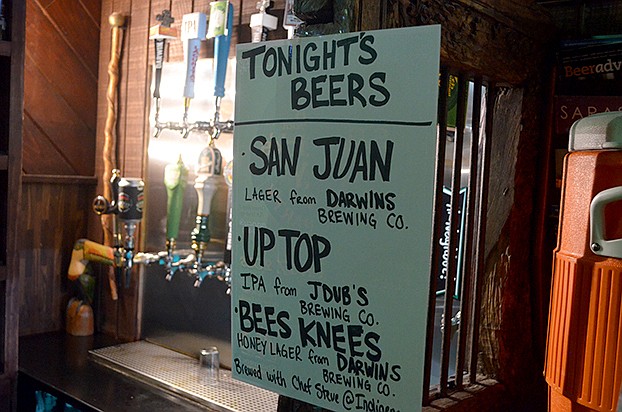 TONIGHT'S
BEERS
· SAN JUAN
LAGER from DARWINS
BREWING CO.
· UP TOP
IPA from JDUB'S
BREWING CO.
· BEES KNEES
HONEY LAGER from DARWINS
BREWING CO.
Brewed with Chef Steve @
Beeradv
SARAS